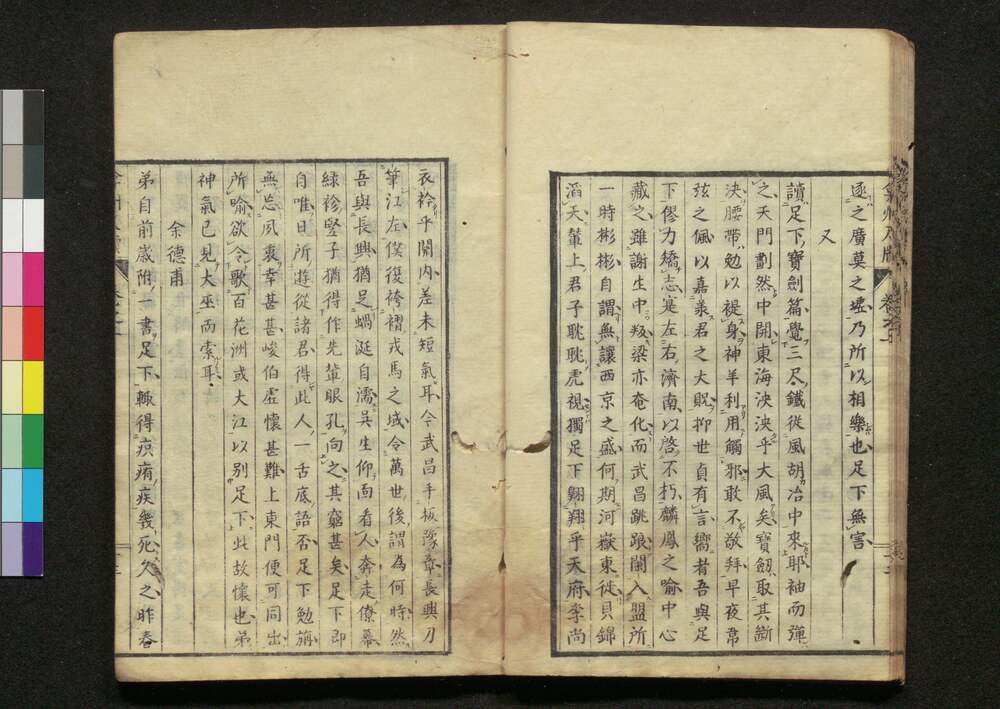 逐之廣莫之墟乃所以相樂也足下無害
又
讀足下寶劍篇覺三尺鐵從風胡冶中來耶袖而彈
之天門劃然中開東海泱泱乎大風矣寶劒取其斷
決腰帶勉以褆身神羊利用觸邪敢不敬拜早夜韋
弦之佩以嘉羕君之大貺抑世貞有言嚮者吾與足
下僇力矯志寔左右濟南以啓不朽麟鳳之喻中心
藏之雖謝生中叛梁亦奄化而武昌跳踉闌入盟所
一時彬彬自謂無讓西京之盛何期河嶽東徙貝錦
滔天輦上君子耽耽虎視獨足下翺翔乎天府李尚
衣衿乎關內差未短氣耳今武昌手板豫章長興刀
筆江左僕復袴褶戎馬之域令萬世後謂為何時然
吾與長興猶足蝸涎自濡吳生仰面看人奔走僚幕
綠袗豎子猶得作先輩眼孔向之其窮甚矣足下即
自唯日所遊從諸君得此人一舌底語否足下勉旃
無忘夙衷幸甚甚峻伯虛懷甚難上東門便可同出
所喻欲令歌百花洲或大江以別足下此故懷也弟
神氣已見大巫而索耳
余德甫
弟自前歲附一書足下輙得痰痏疾幾死久之昨春